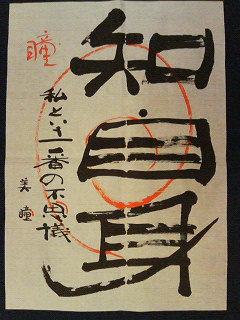 知自身
私という一番の不思議
美瞳
瞳